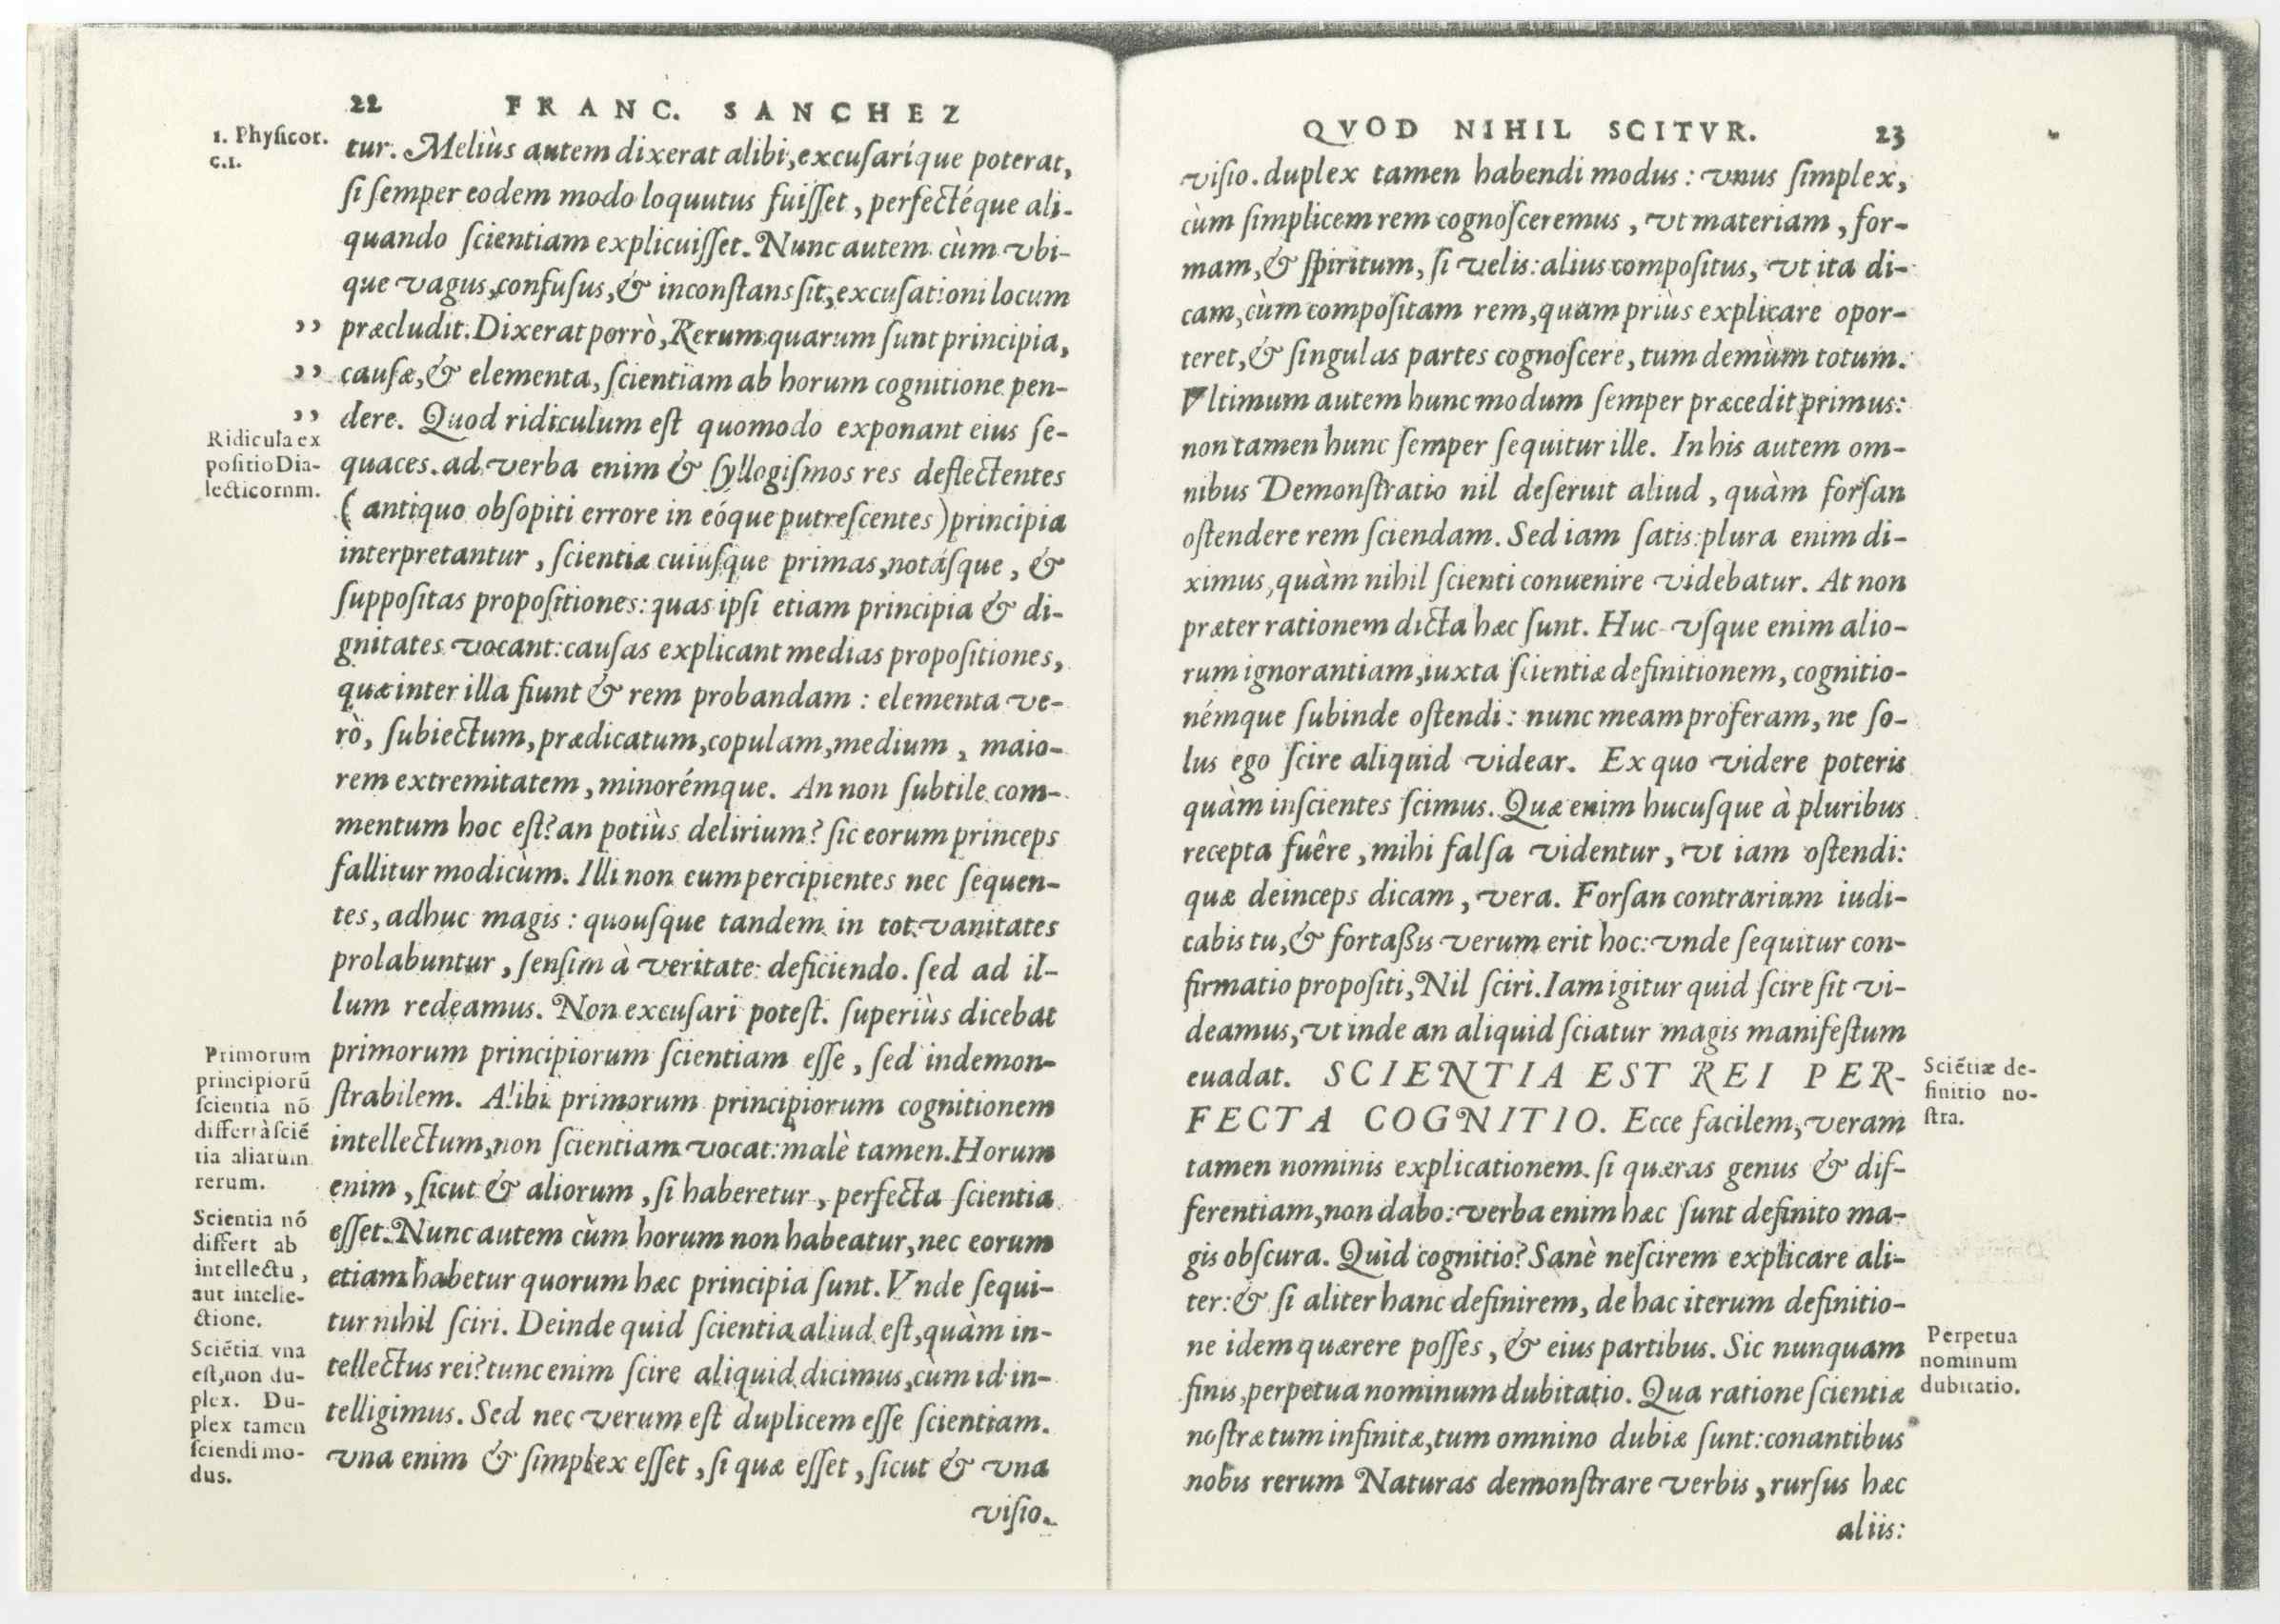 22 FRANC. SANCHEZ
1. Physicor.
c.1.
tur. Meliùs autem dixerat alibi, excusaríque poterat,
si semper eodem modo loquutus fuisset, perfectéque ali-
quando scientiam explicuisset. Nunc autem cùm vbi-
que vagus, confusus, & inconstans sit, excusationi locum
,, præcludit. Dixerat porrò, Rerum quarum sunt principia,
,, causæ, & elementa, scientiam ab horum cognitione pen-
,, dere. Quod ridiculum est quomodo exponant eius se-
Ridicula ex
positio Dia-
lecticorum.
quaces. ad verba enim & syllogismos res deflectentes
( antiquo obsopiti errore in eóque putrescentes) principia
interpretantur, scientiæ cuiusque primas, notásque, &
suppositas propositiones: quas ipsi etiam principia & di-
gnitates vocant: causas explicant medias propositiones,
quæ inter illa fiunt & rem probandam : elementa ve-
rò, subiectum, prædicatum, copulam, medium, maio-
rem extremitatem, minorémque. An non subtile com-
mentum hoc est? an potiùs delirium? sic eorum princeps
fallitur modicùm. Illi non eum percipientes nec sequen-
tes, adhuc magis : quousque tandem in tot vanitates
prolabuntur, sensim à veritate deficiendo. sed ad il-
lum redeamus. Non excusari potest. superiùs dicebat
Primorum
principiorū
scientia nō
differt à sciē
tia aliarum
rerum.
primorum principiorum scientiam esse, sed indemon-
strabilem. Alibi primorum principiorum cognitionem
intellectum, non scientiam vocat: malè tamen. Horum
enim, sicut & aliorum, si haberetur, perfecta scientia
Scientia nō
differt ab
intellectu,
aut intelle-
ctione.
esset. Nunc autem cùm horum non habeatur, nec eorum
etiam habetur quorum hæc principia sunt. Vnde sequi-
tur nihil sciri. Deinde quid scientia aliud est, quàm in-
Sciētia vna
est, non du-
plex. Du-
plex tamen
sciendi mo-
dus.
tellectus rei? tunc enim scire aliquid dicimus, cùm id in-
telligimus. Sed nec verum est duplicem esse scientiam.
vna enim & simplex esset, si quæ esset, sicut & vna
visio.
QVOD NIHIL SCITVR. 23
visio. duplex tamen habendi modus : vnus simplex,
cùm simplicem rem cognosceremus, vt materiam, for-
mam, & spiritum, si velis: alius compositus, vt ita di-
cam, cùm compositam rem, quam priùs explicare opor-
teret, & singulas partes cognoscere, tum demùm totum.
Vltimum autem hunc modum semper præcedit primus:
non tamen hunc semper sequitur ille. In his autem om-
nibus Demonstratio nil deseruit aliud, quàm forsan
ostendere rem sciendam. Sed iam satis: plura enim di-
ximus, quàm nihil scienti conuenire videbatur. At non
præter rationem dicta hæc sunt. Huc vsque enim alio-
rum ignorantiam, iuxta scientiæ definitionem, cognitio-
némque subinde ostendi : nunc meam proferam, ne so-
lus ego scire aliquid videar. Ex quo videre poteris
quàm inscientes scimus. Quæ enim hucusque à pluribus
recepta fuêre, mihi falsa videntur, vt iam ostendi:
quæ deinceps dicam, vera. Forsan contrarium iudi-
cabis tu, & fortaßis verum erit hoc: vnde sequitur con-
firmatio propositi, Nil sciri. Iam igitur quid scire sit vi-
deamus, vt inde an aliquid sciatur magis manifestum
euadat. SCIENTIA EST REI PER-
FECTA COGNITIO. Ecce facilem, veram
Sciētiæ de-
finitio no-
stra.
tamen nominis explicationem. si quæras genus & dif-
ferentiam, non dabo: verba enim hæc sunt definito ma-
gis obscura. Quid cognitio? Sanè nescirem explicare ali-
ter: & si aliter hanc definirem, de hac iterum definitio-
ne idem quærere posses, & eius partibus. Sic nunquam
finis, perpetua nominum dubitatio. Qua ratione scientiæ
Perpetua
nominum
dubitatio.
nostræ tum infinitæ, tum omnino dubiæ sunt: conantibus
nobis rerum Naturas demonstrare verbis, rursus hæc
aliis: